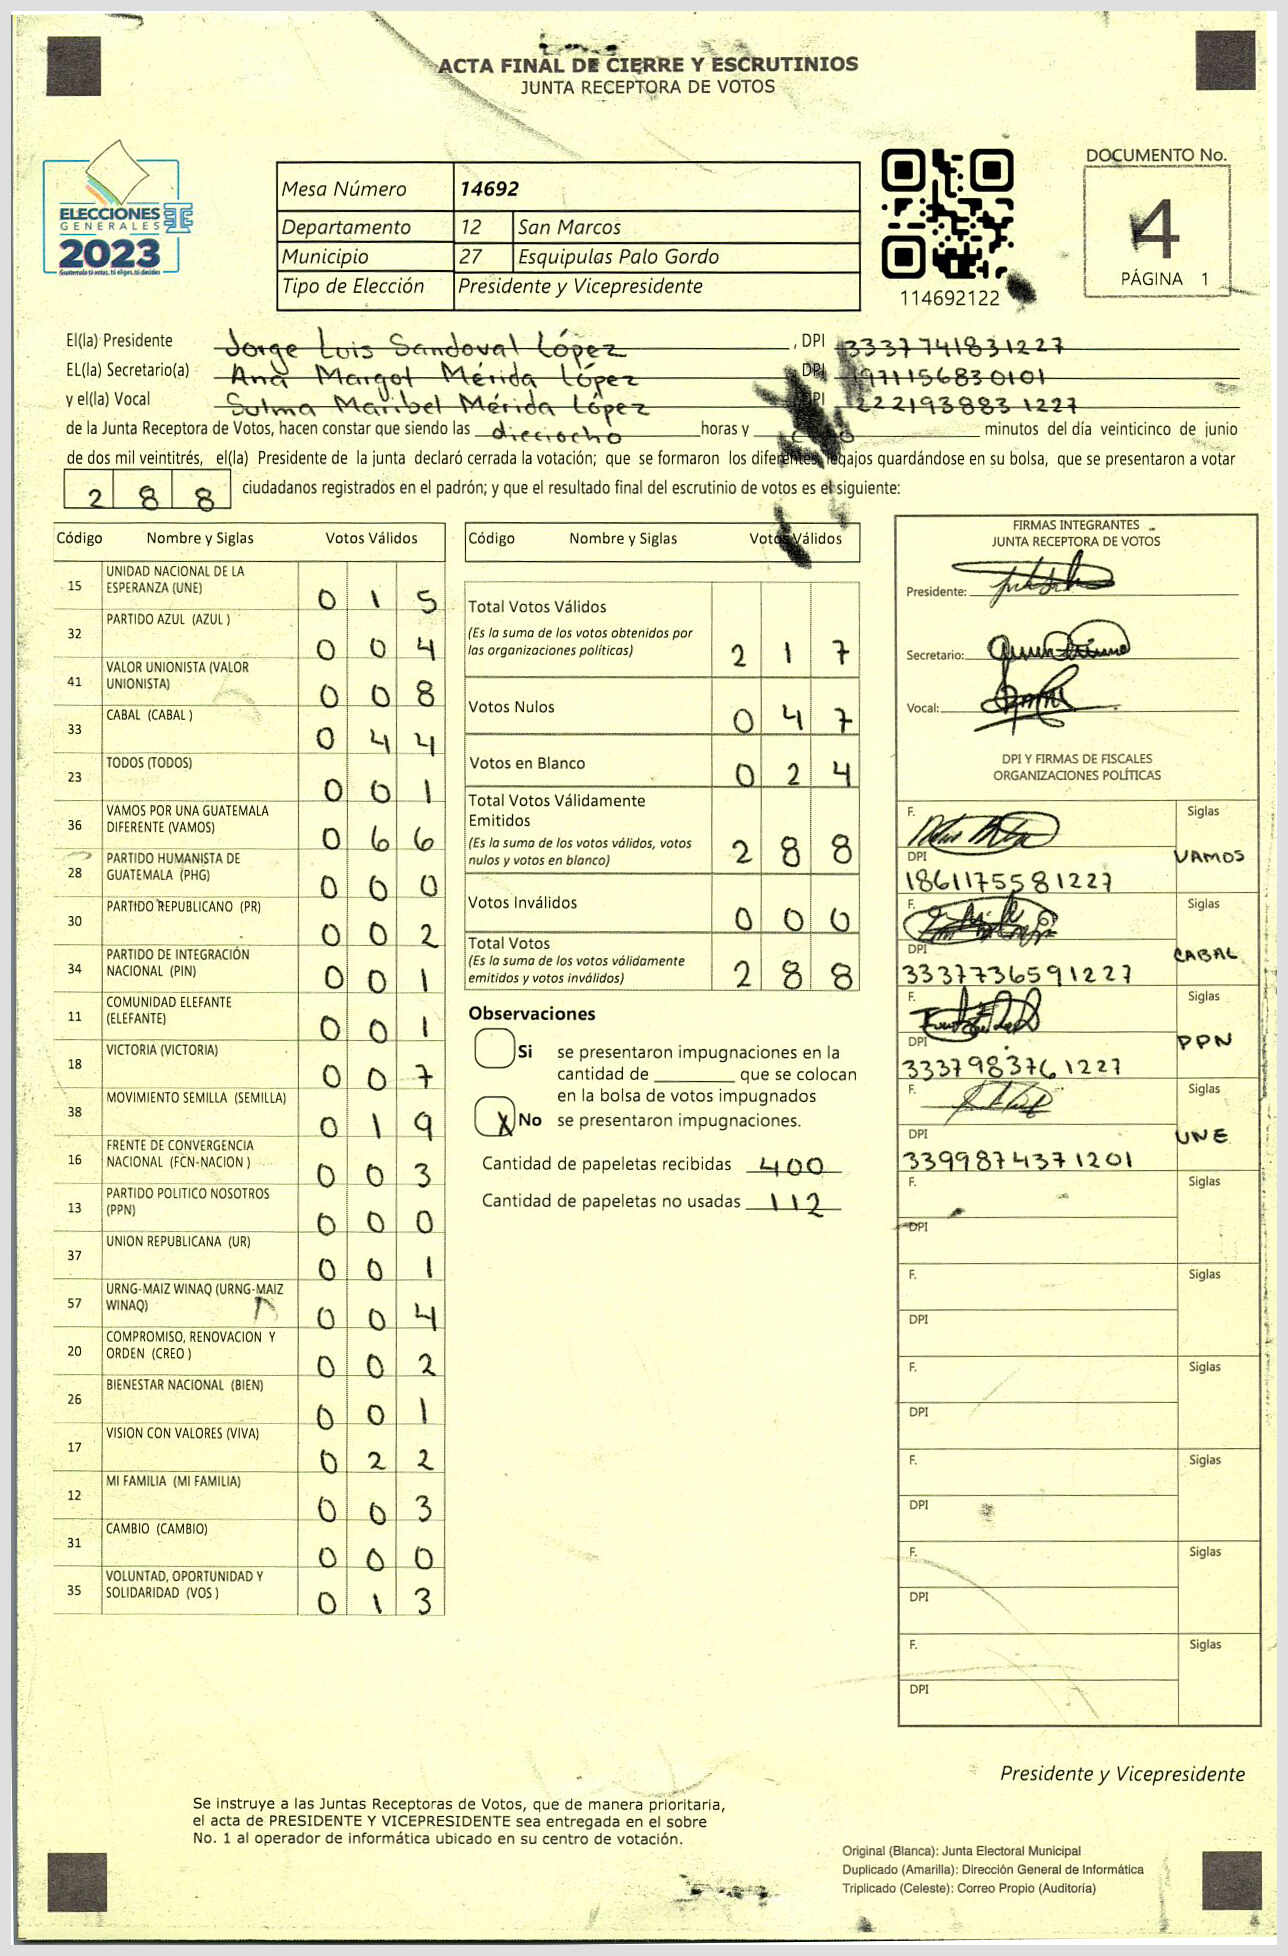 ACTA FINAL DE CIERRE Y ESCRUTINIOS
JUNTA RECEPTORA DE VOTOS
ELECCIONES
GENERALES
2023
Guatemala tú votas, tú eliges, tú decides
Mesa Número 14692
Departamento 12 San Marcos
Municipio 27 Esquipulas Palo Gordo
Tipo de Elección Presidente y Vicepresidente
114692122
DOCUMENTO No.
4
PÁGINA 1
El(la) Presidente Jorge Luis Sandoval López , DPI 3337741831227
EL(la) Secretario(a) Ana Margot Mérida López , DPI 1971156830101
y el(la) Vocal Sulma Maribel Mérida López DPI 2221938831227
de la Junta Receptora de Votos, hacen constar que siendo las dieciocho horas y minutos del día veinticinco de junio
de dos mil veintitrés, el(la) Presidente de la junta declaró cerrada la votación; que se formaron los diferentes legajos guardándose en su bolsa, que se presentaron a votar
288 ciudadanos registrados en el padrón; y que el resultado final del escrutinio de votos es el siguiente:
Código Nombre y Siglas Votos Válidos
15 UNIDAD NACIONAL DE LA ESPERANZA (UNE) 015
32 PARTIDO AZUL (AZUL ) 004
41 VALOR UNIONISTA (VALOR UNIONISTA) 008
33 CABAL (CABAL ) 044
23 TODOS (TODOS) 001
36 VAMOS POR UNA GUATEMALA DIFERENTE (VAMOS) 066
28 PARTIDO HUMANISTA DE GUATEMALA (PHG) 000
30 PARTIDO REPUBLICANO (PR) 002
34 PARTIDO DE INTEGRACIÓN NACIONAL (PIN) 001
11 COMUNIDAD ELEFANTE (ELEFANTE) 001
18 VICTORIA (VICTORIA) 007
38 MOVIMIENTO SEMILLA (SEMILLA) 019
16 FRENTE DE CONVERGENCIA NACIONAL (FCN-NACION ) 003
13 PARTIDO POLITICO NOSOTROS (PPN) 000
37 UNION REPUBLICANA (UR) 001
57 URNG-MAIZ WINAQ (URNG-MAIZ WINAQ) 004
20 COMPROMISO, RENOVACION Y ORDEN (CREO ) 002
26 BIENESTAR NACIONAL (BIEN) 001
17 VISION CON VALORES (VIVA) 022
12 MI FAMILIA (MI FAMILIA) 003
31 CAMBIO (CAMBIO) 000
35 VOLUNTAD, OPORTUNIDAD Y SOLIDARIDAD (VOS ) 013
Código Nombre y Siglas Votos Válidos
Total Votos Válidos
(Es la suma de los votos obtenidos por
las organizaciones políticas) 217
Votos Nulos 047
Votos en Blanco 024
Total Votos Válidamente
Emitidos
(Es la suma de los votos válidos, votos
nulos y votos en blanco) 288
Votos Inválidos 000
Total Votos
(Es la suma de los votos válidamente
emitidos y votos inválidos) 288
Observaciones
Si se presentaron impugnaciones en la
cantidad de ________ que se colocan
en la bolsa de votos impugnados
X No se presentaron impugnaciones.
Cantidad de papeletas recibidas 400
Cantidad de papeletas no usadas 112
FIRMAS INTEGRANTES
JUNTA RECEPTORA DE VOTOS
Presidente:
Secretario:
Vocal:
DPI Y FIRMAS DE FISCALES
ORGANIZACIONES POLÍTICAS
F. Siglas
DPI VAMOS
1861175581227
F. Siglas
DPI CABAL
3337736591227
F. Siglas
DPI PPN
3337983761227
F. Siglas
DPI UNE
3399874371201
F. Siglas
DPI
F. Siglas
DPI
F. Siglas
DPI
F. Siglas
DPI
F. Siglas
DPI
F. Siglas
DPI
Presidente y Vicepresidente
Se instruye a las Juntas Receptoras de Votos, que de manera prioritaria,
el acta de PRESIDENTE Y VICEPRESIDENTE sea entregada en el sobre
No. 1 al operador de informática ubicado en su centro de votación.
Original (Blanca): Junta Electoral Municipal
Duplicado (Amarilla): Dirección General de Informática
Triplicado (Celeste): Correo Propio (Auditoría)